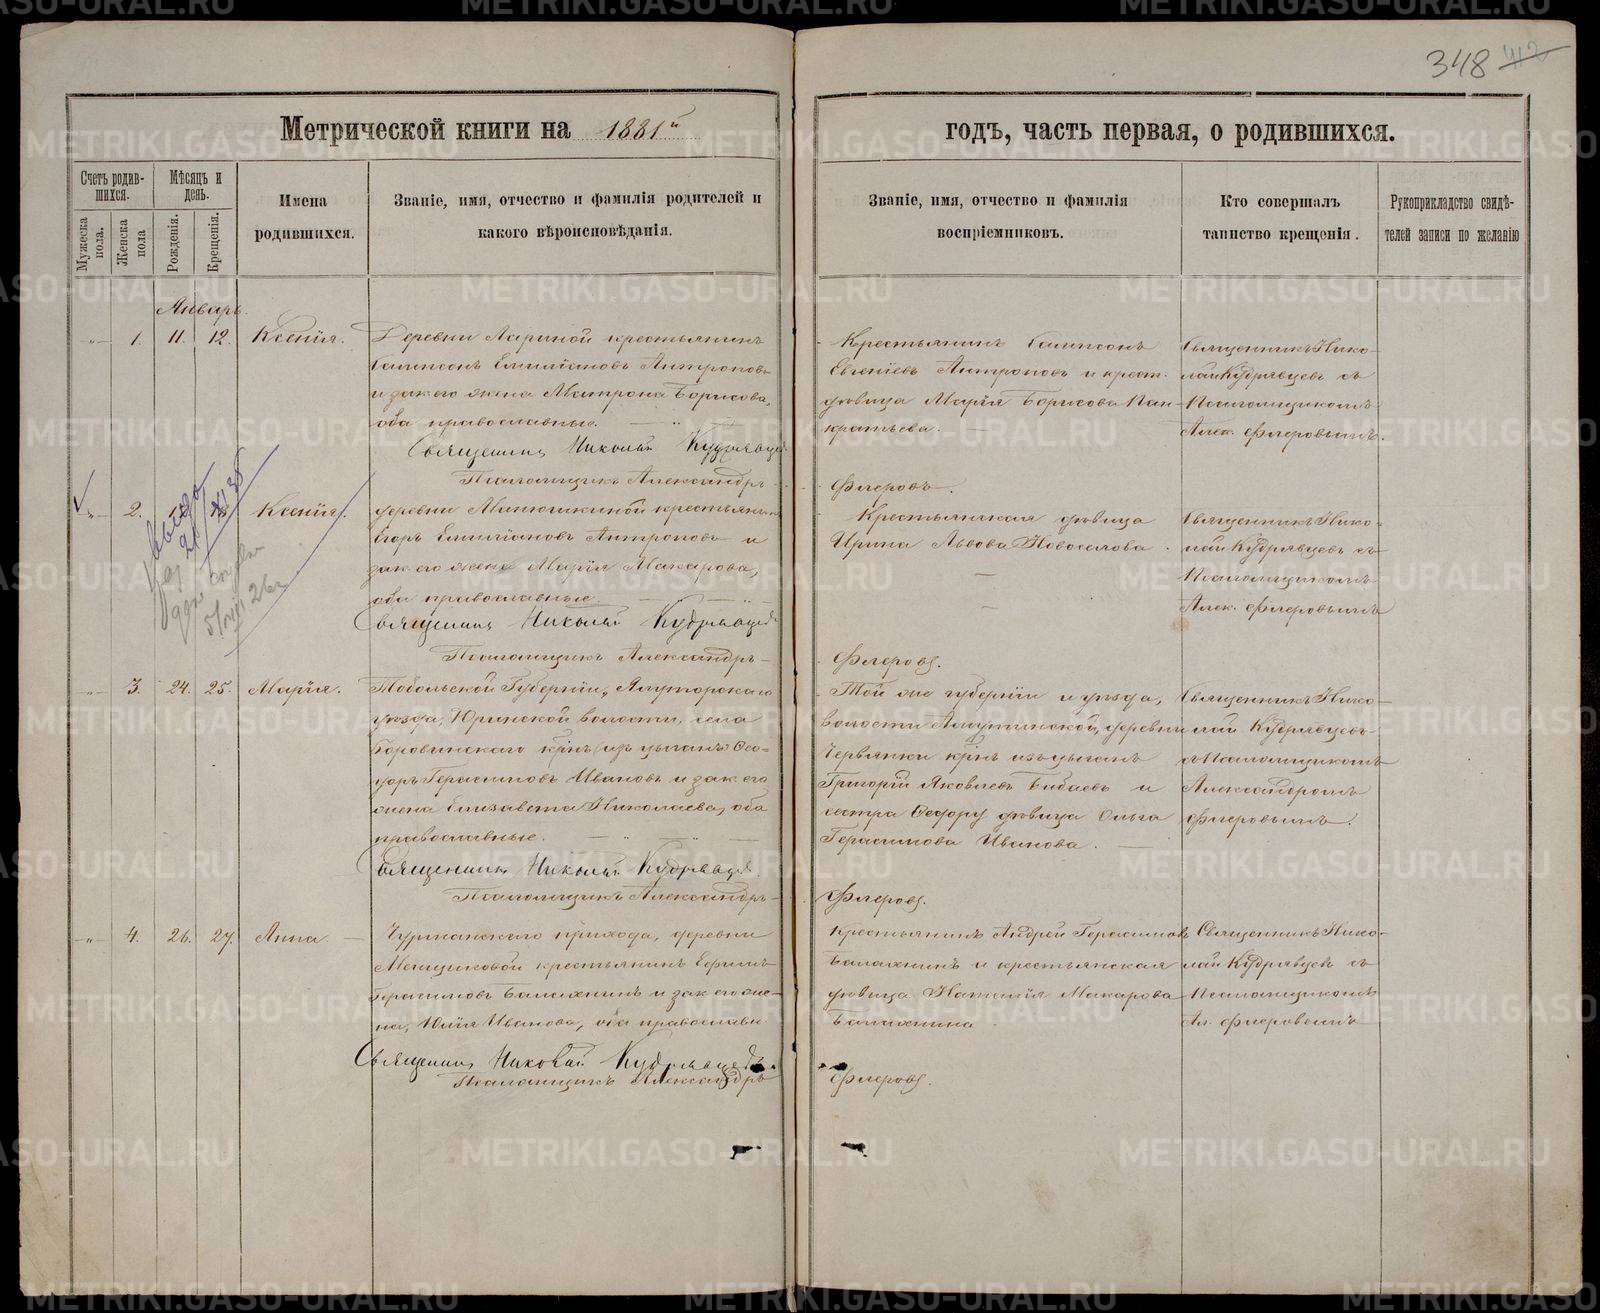 348 412
Метрической книги на 1881й
годъ, часть первая, о родившихся.
Счетъ родившихся.
Мужеска пола.
Женска пола
Мѣсяцъ и день.
Рожденія.
Крещенія.
Имена родившихся.
Званіе, имя, отчество и фамилія родителей и какого вѣроисповѣданія.
Званіе, имя, отчество и фамилія воспріемниковъ.
Кто совершалъ таинство крещенія.
Рукоприкладство свидѣтелей записи по желанію
Январь.
1. 11. 12. Ксенія.
Деревни Лариной крестьянинъ
Сампсонъ Емиліановъ Антроповъ
и зак. его жена Матрона Борисова,
оба православные.
Священникъ Николай Кудрявцев
Псаломщикъ Александръ
Крестьянинъ Сампсонъ
Евгеніевъ Антроповъ и крест.
дѣвица Марія Борисова Пан-
кратьева.
Флеровъ.
Священникъ Нико-
лай Кудрявцевъ съ
Псаломщикомъ
Алек. Флеровымъ.
2. Ксенія.
деревни Матюшкиной крестьянин
Егоръ Емиліановъ Антроповъ и
зак. его жена Марія Макарова,
оба православные.
Священникъ Николай Кудрявцев
Псаломщикъ Александръ
Крестьянская дѣвица
Ирина Львова Новоселова.
Флеровъ.
Священникъ Нико-
лай Кудрявцевъ съ
Псаломщикомъ
Алек. Флеровымъ
3. 24. 25. Марія.
Тобольской Губерніи, Ялуторскаго
уѣзда, Юринской волости, села
Боровинскаго кр̃нъ (изъ цыганъ) Ѳео-
доръ Герасимовъ Ивановъ и зак. его
жена Елизавета Николаева, оба
православные.
Священникъ Николай Кудрявцев.
Псаломщикъ Александръ
Той же губерніи и уѣзда,
волости деревни
кр̃нъ изъ цыганъ
Григорій Яковлевъ Бибаевъ и
сестра Ѳеодору дѣвица Ольга
Герасимова Иванова.
Флеровъ.
Священникъ Нико-
лай Кудрявцевъ
съ Псаломщикомъ
Александромъ
Флеровымъ.
4. 26. 27. Анна.
прихода, деревни
Мѣнщиковой крестьянинъ Ефимъ
Герасимовъ Балахнинъ и зак. его же-
на, Юлія Иванова, оба православн.
Священникъ Николай Кудрявцевъ.
Псаломщикъ Александръ
Крестьянинъ Андрей Герасимовъ
Балахнинъ и крестьянская
дѣвица Наталія Макарова
Балахнина
Флеровъ.
Священникъ Нико-
лай Кудрявцевъ съ
Псаломщикомъ
Ал. Флеровымъ
METRIKI.GASO-URAL.RU